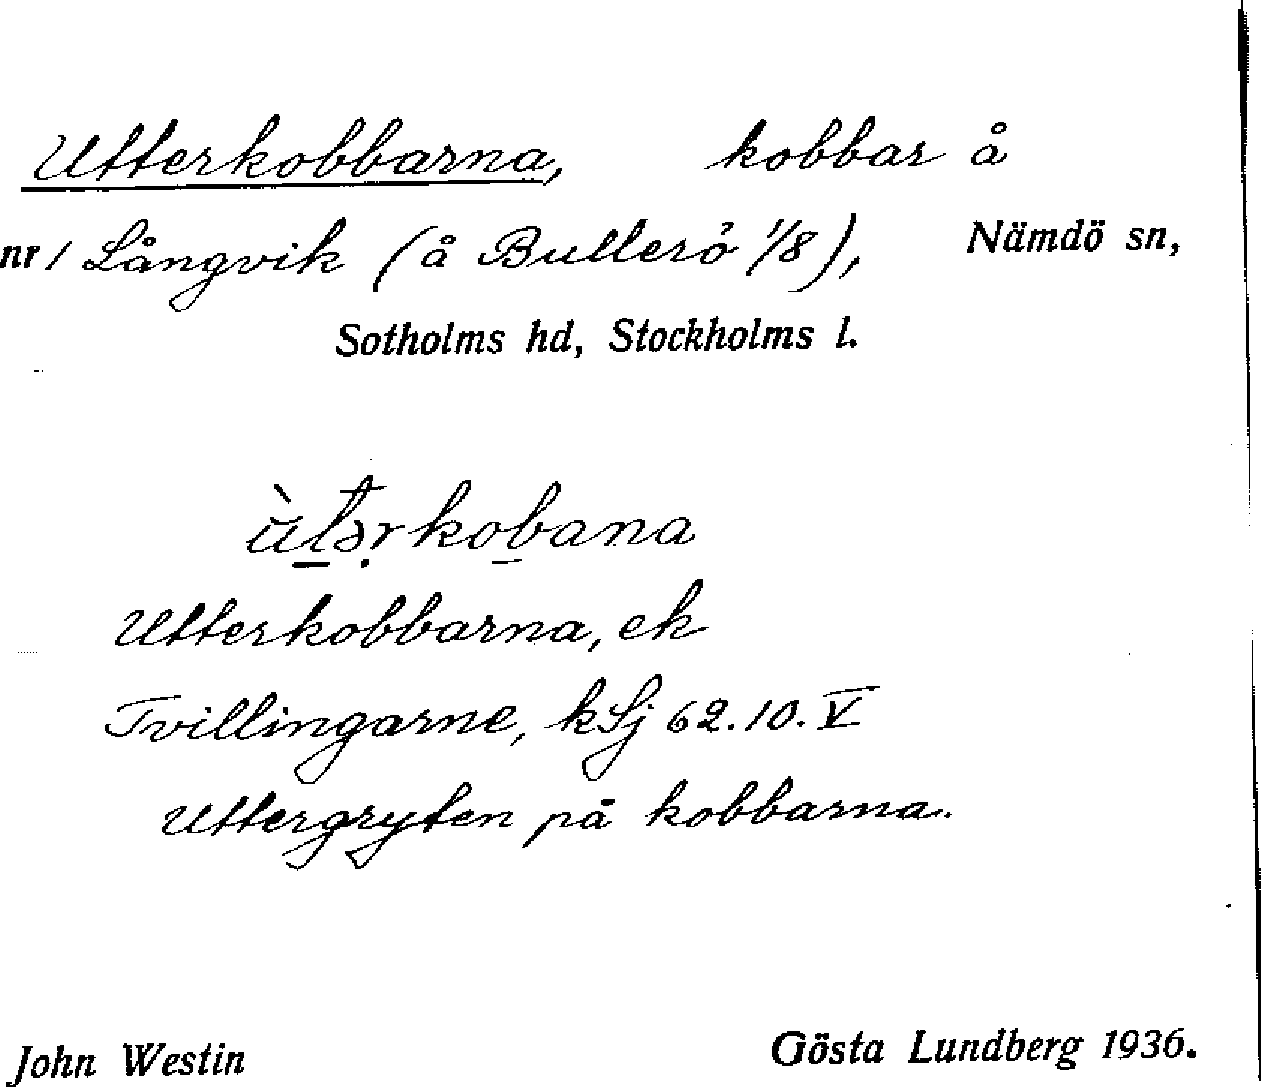 Utterkobbarna, kobbar å
nr 1 Långvik (å Bullerö 1/8), Nämdö sn,
Sotholms hd, Stockholms l.
ùtərkobana
Utterkobbarna, ek
Tvillingarne, kSj 62.10.V
Uttergryten på kobbarna.
John Westin Gösta Lundberg 1936.